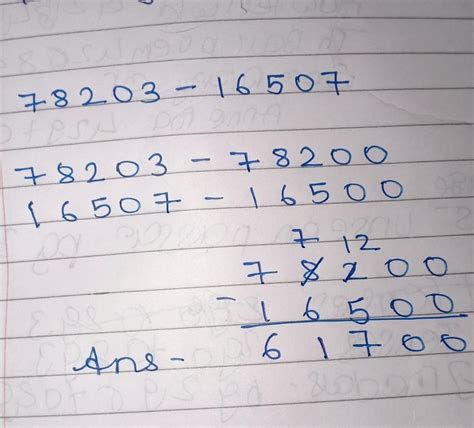 78203 - 16507
78203 - 78200
16507 - 16500
7 12
7 8 2 0 0
- 1 6 5 0 0
Ans - 6 1 7 0 0